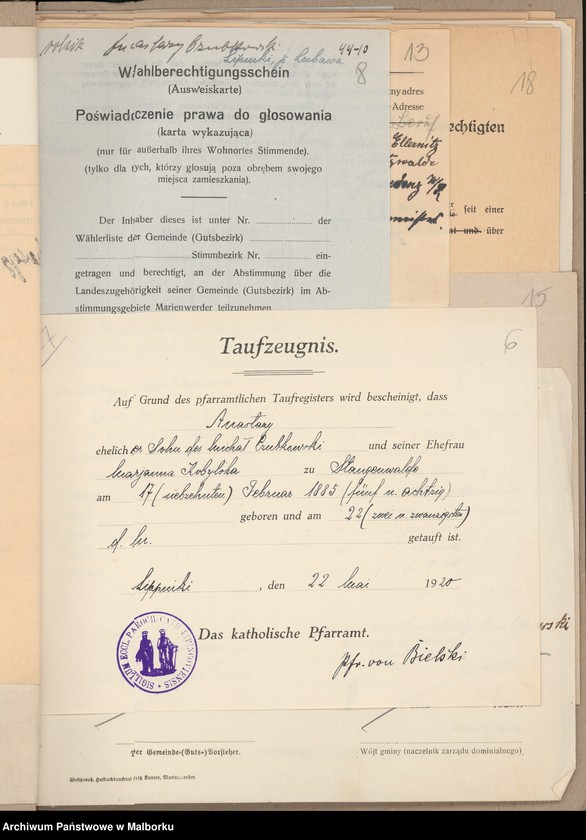 rolnik Anastazy Czubkowski 44-10
Lipinki, p. Lubawa
8
Wahlberechtigungsschein
(Ausweiskarte)
Poświadczenie prawa do głosowania
(karta wykazująca)
(nur für außerhalb ihres Wohnortes Stimmende).
(tylko dla tych, którzy głosują poza obrębem swojego
miejsca zamieszkania).
Der Inhaber dieses ist unter Nr. der
Wählerliste der Gemeinde (Gutsbezirk)
Stimmbezirk Nr. ein-
getragen und berechtigt, an der Abstimmung über die
Landeszugehörigkeit seiner Gemeinde (Gutsbezirk) im Ab-
stimmungsgebiete Marienwerder teilzunehmen
13
Adresse
Beruf
18
echtigten
seit einer
über
15
6
Taufzeugnis.
Auf Grund des pfarramtlichen Taufregisters wird bescheinigt, dass
Anastazy
ehelich er Sohn des Michał Czubkowski und seiner Ehefrau
Marjanna Kobylska zu Stangenwalde
am 17 (siebzehnten) Februar 1885 (fünf u. achtzig)
geboren und am 22 (zwei u. zwanzigsten)
d. M. getauft ist.
Lippinki, den 22 Mai 1920
Das katholische Pfarramt.
Pfr. von Bielski
der Gemeinde-(Guts-)Vorsteher.
Wójt gminy (naczelnik zarządu dominialnego).
Archiwum Państwowe w Malborku